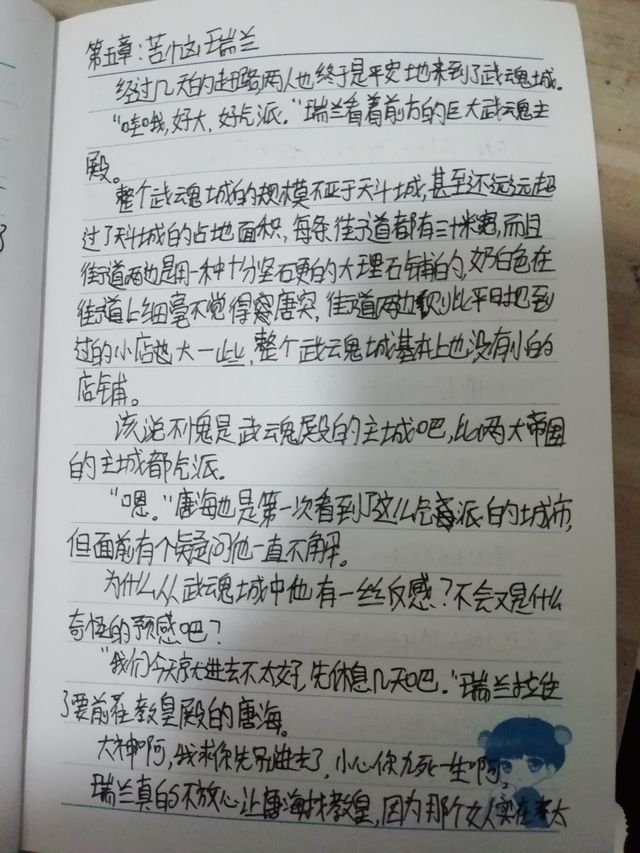 第五章:苦恼瑞兰
经过几天的赶路两人也终于是平安地来到了武魂城。
“哇哦,好大,好气派。”瑞兰看着前方的巨大武魂主
殿。
整个武魂城的规模不亚于天斗城,甚至还远远超
过了天斗城的占地面积,每条街道都有三十米宽,而且
街道两边是用一种十分坚硬的大理石铺的,奶白色在
街道上细毫不觉得唐突,街道两边则比平日把到
过的小店也大一些,整个武魂城基本上也没有小的
店铺。
该说不愧是武魂殿的主城吧,比两大帝国
的主城都气派。
“嗯。”唐海也是第一次看到了这么气派的城市,
但面前有个疑问他一直不解。
为什么从武魂城中他有一丝反感?不会又是什么
奇怪的预感吧?
“我们今天进去不太好,先休息几天吧。”瑞兰拉住
了要前往教皇殿的唐海。
大神啊,我求你先别进去了,小心你九死一生啊。
瑞兰真的不放心让唐海找教皇,因为那个女人实在太